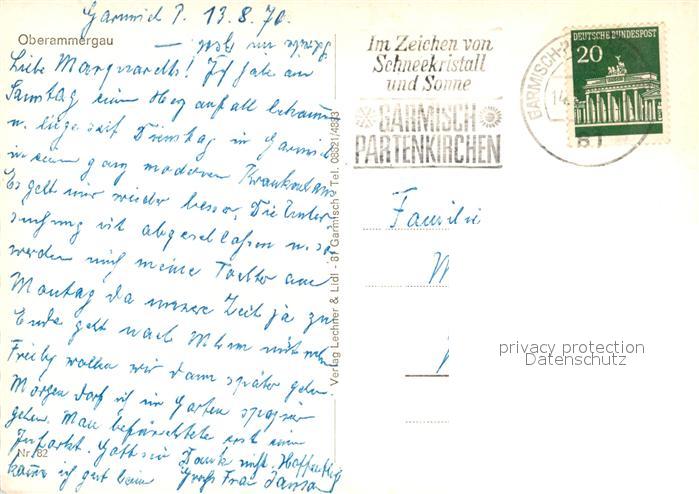 Garmisch P. 13.8.70.
Oberammergau
Liebe Marquardts! Ich habe am
Samstag einen Herzanfall bekommen
u. liege seit Dienstag in Garmisch
in einem ganz modernen Krankenhaus
Es geht mir wieder besser. Die Unter-
suchung ist abgeschlossen u. so
werden mich meine Tochter am
Montag da unsere Zeit ja zu
Ende geht nach
wollen wir dann später gehn.
Morgen darf ich im Garten spazieren
gehen. Man befürchtete erst einen
Infarkt. Gott sei Dank nicht. Hoffentlich
komme ich gut heim Gruß Frau
Nr. 82
Verlag Lechner & Lidl - 81 Garmisch - Tel. 08821/4833
Im Zeichen von
Schneekristall
und Sonne
GARMISCH
PARTENKIRCHEN
GARMISCH-P
81
DEUTSCHE BUNDESPOST
20
Familie
privacy protection
Datenschutz